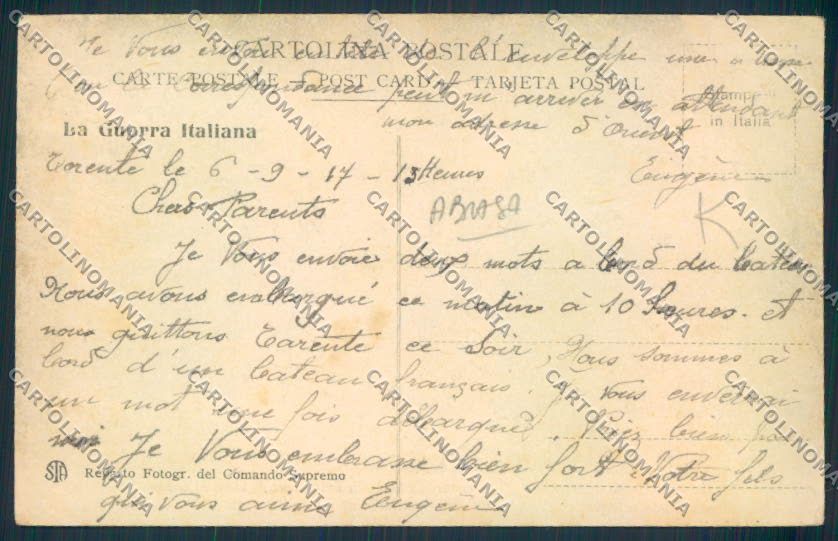 Je Vous envoie une
CARTOLINA POSTALE
l'enveloppe
CARTE POSTALE - POST CARD - TARJETA POSTAL
correspondance peut m arriver en attendant
mon adresse d'Orient
Stamp
in Italia
La Guerra Italiana
Eugène
Tarente le 6-9-17 - 13 Heures
Chers Parents
ABIASA
K
Je Vous envoie deux mots a bord du bateau
Nous avons embarqué ce matin à 10 heures. et
nous quittons Tarente ce Soir, Nous sommes à
bord d'un bateau français. Je vous enverrai
un mot une fois débarqué. bien
moi Je Vous embrasse bien fort Votre fils
STA Reparto Fotogr. del Comando Supremo
qui vous aime Eugène
CARTOLINOMANIA